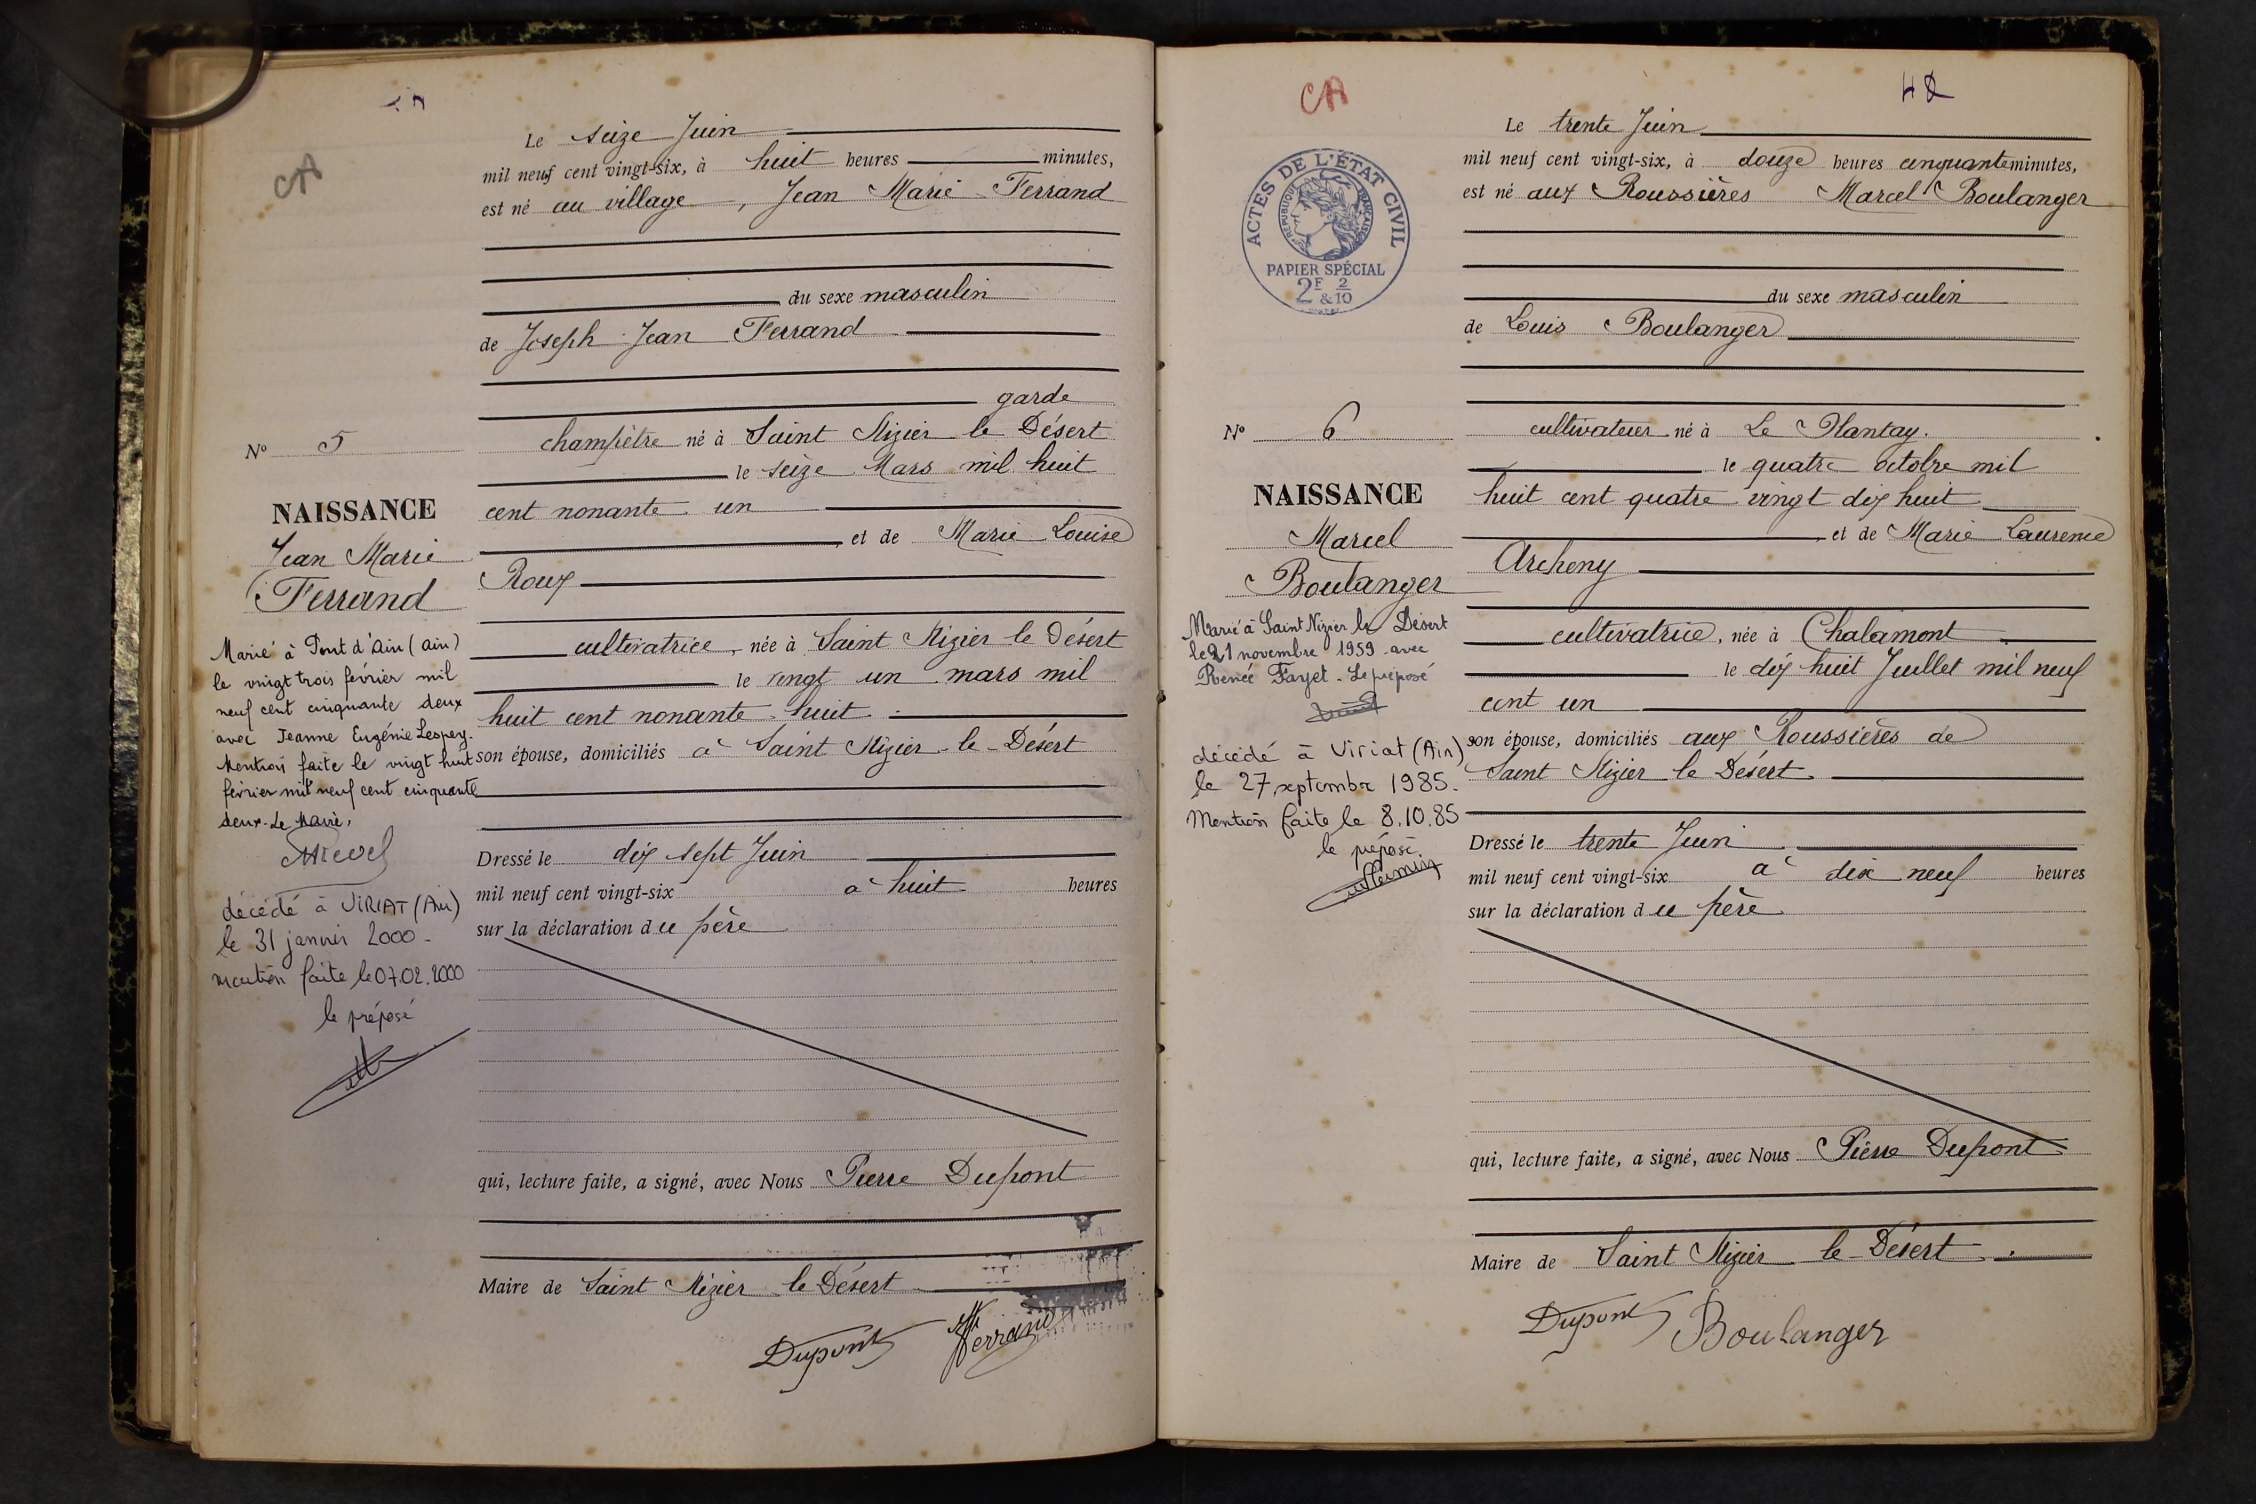 CA
Le seize Juin
mil neuf cent vingt-six, à huit heures minutes,
est né au village, Jean Marie Ferrand
du sexe masculin
de Joseph Jean Ferrand
garde
champêtre né à Saint Nizier le Désert
le seize Mars mil huit
cent nonante un
et de Marie Louise
Roux
cultivatrice, née à Saint Nizier le Désert
le vingt un mars mil
huit cent nonante huit
son épouse, domiciliés à Saint Nizier le Désert
Dressé le dix sept Juin
mil neuf cent vingt-six à huit heures
sur la déclaration du père
qui, lecture faite, a signé, avec Nous Pierre Dupont
Maire de Saint Nizier le Désert
Dupont Ferrand
No 5
NAISSANCE
Jean Marie
Ferrand
Marié à Pont d'Ain (Ain)
le vingt trois février mil
neuf cent cinquante deux
avec Jeanne Eugénie Lespey.
Mention faite le vingt huit
février mil neuf cent cinquante
deux. Le Maire,
décédé à VIRIAT (Ain)
le 31 janvier 2000-
mention faite le 07.02.2000
le préposé
CA
42
ACTES DE L'ÉTAT CIVIL
RÉPUBLIQUE FRANÇAISE
PAPIER SPÉCIAL
2F & 2/10
Le trente Juin
mil neuf cent vingt-six, à douze heures cinquante minutes,
est né aux Roussières Marcel Boulanger
du sexe masculin
de Louis Boulanger
cultivateur né à Le Plantay.
le quatre octobre mil
huit cent quatre vingt dix huit
et de Marie Laurence
Archeny
cultivatrice, née à Chalamont
le dix huit Juillet mil neuf
cent un
son épouse, domiciliés aux Roussières de
Saint Nizier le Désert
Dressé le trente Juin
mil neuf cent vingt-six à dix neuf heures
sur la déclaration du père
qui, lecture faite, a signé, avec Nous Pierre Dupont
Maire de Saint Nizier le Désert.
Dupont Boulanger
No 6
NAISSANCE
Marcel
Boulanger
Marié à Saint Nizier le Désert
le 21 novembre 1959 avec
Renée Fayet. Le préposé
décédé à Viriat (Ain)
le 27 septembre 1985.
Mention faite le 8.10.85
le préposé